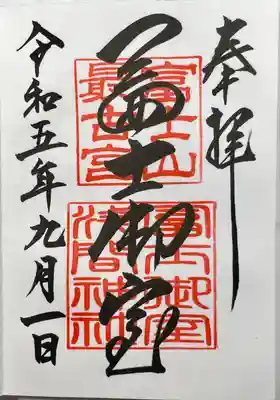 奉拝
冨士御室
富士山
最古宮
冨士御室
淺間神社
令和五年九月一日